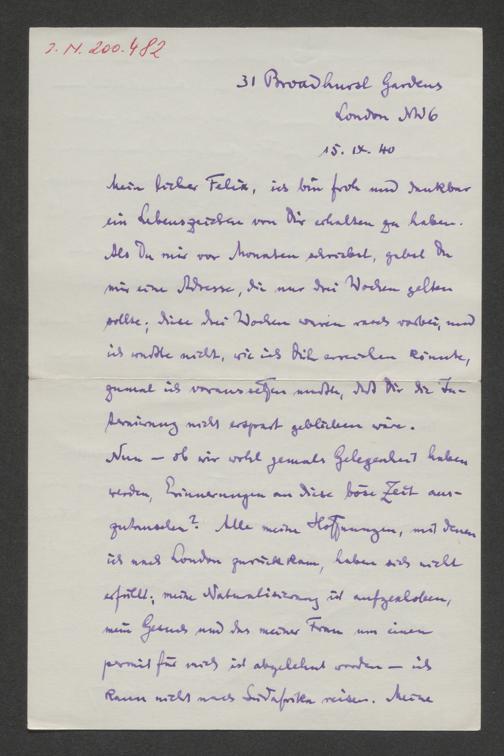 J. N. 200.482
31 Broadhurst Gardens
London NW6
15. IX. 40
Mein lieber Felix, ich bin froh und dankbar
ein Lebenszeichen von Dir erhalten zu haben.
Als Du mir vor Monaten schriebst, gabst Du
mir eine Adresse, die nur drei Wochen gelten
sollte; diese drei Wochen waren rasch vorbei, und
ich wußte nicht, wie ich Dich erreichen könnte,
zumal ich voraussetzen mußte, daß Dir die In-
ternierung nicht erspart geblieben wäre.
Nun — ob wir wohl jemals Gelegenheit haben
werden, Erinnerungen an diese böse Zeit aus-
zutauschen? Alle meine Hoffnungen, mit denen
ich nach London zurückkam, haben sich nicht
erfüllt; meine Naturalisierung ist aufgeschoben,
mein Gesuch und das meiner Frau um einen
permit für mich ist abgelehnt worden — ich
kann nicht nach Südafrika reisen. Meine